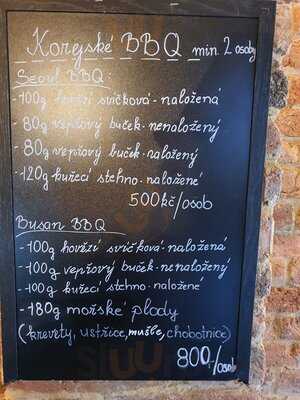 Korejské BBQ min. 2 osoby
Seoul BBQ:
-100g hovězí svíčková - naložená
- 80g vepřový buček - nenaložený
- 80g vepřový buček - naložený
-120g kuřecí stehno - naložené
500kč/osob
Busan BBQ
-100g hovězí svíčková - naložená
-100g vepřový buček - nenaložený
-100g kuřecí stehno - naložené
-180g mořské plody
(krevety, ustřice, mušle, chobotnice)
800,-/osob